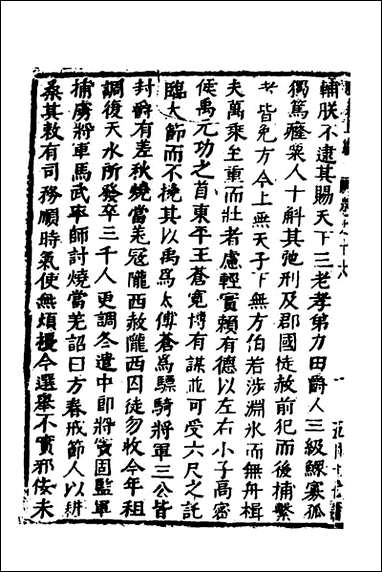 輔朕不逮其賜天下三老孝弟力田爵人三級鰥寡孤
獨篤癃粟人十斛其弛刑及郡國徒赦前犯而後捕繫
者皆免方今上無天子下無方伯若涉淵水而無舟楫
夫萬乘至重而壯者慮輕實賴有德以左右小子高密
侯禹元功之首東平王蒼寛博有謀並可受六尺之託
臨大節而不挽其以禹爲太傅蒼爲驃騎將軍三公皆
封爵有差秋燒當羌冦隴西赦隴西囚徒勿收今年租
調復天水所發卒三千人更調冬遣中郎將竇固監軍
捕虜將軍馬武率師討燒當羌詔曰方春戒節人以耕
桑其敕有司務順時氣使無煩擾今選舉不實邪佞未